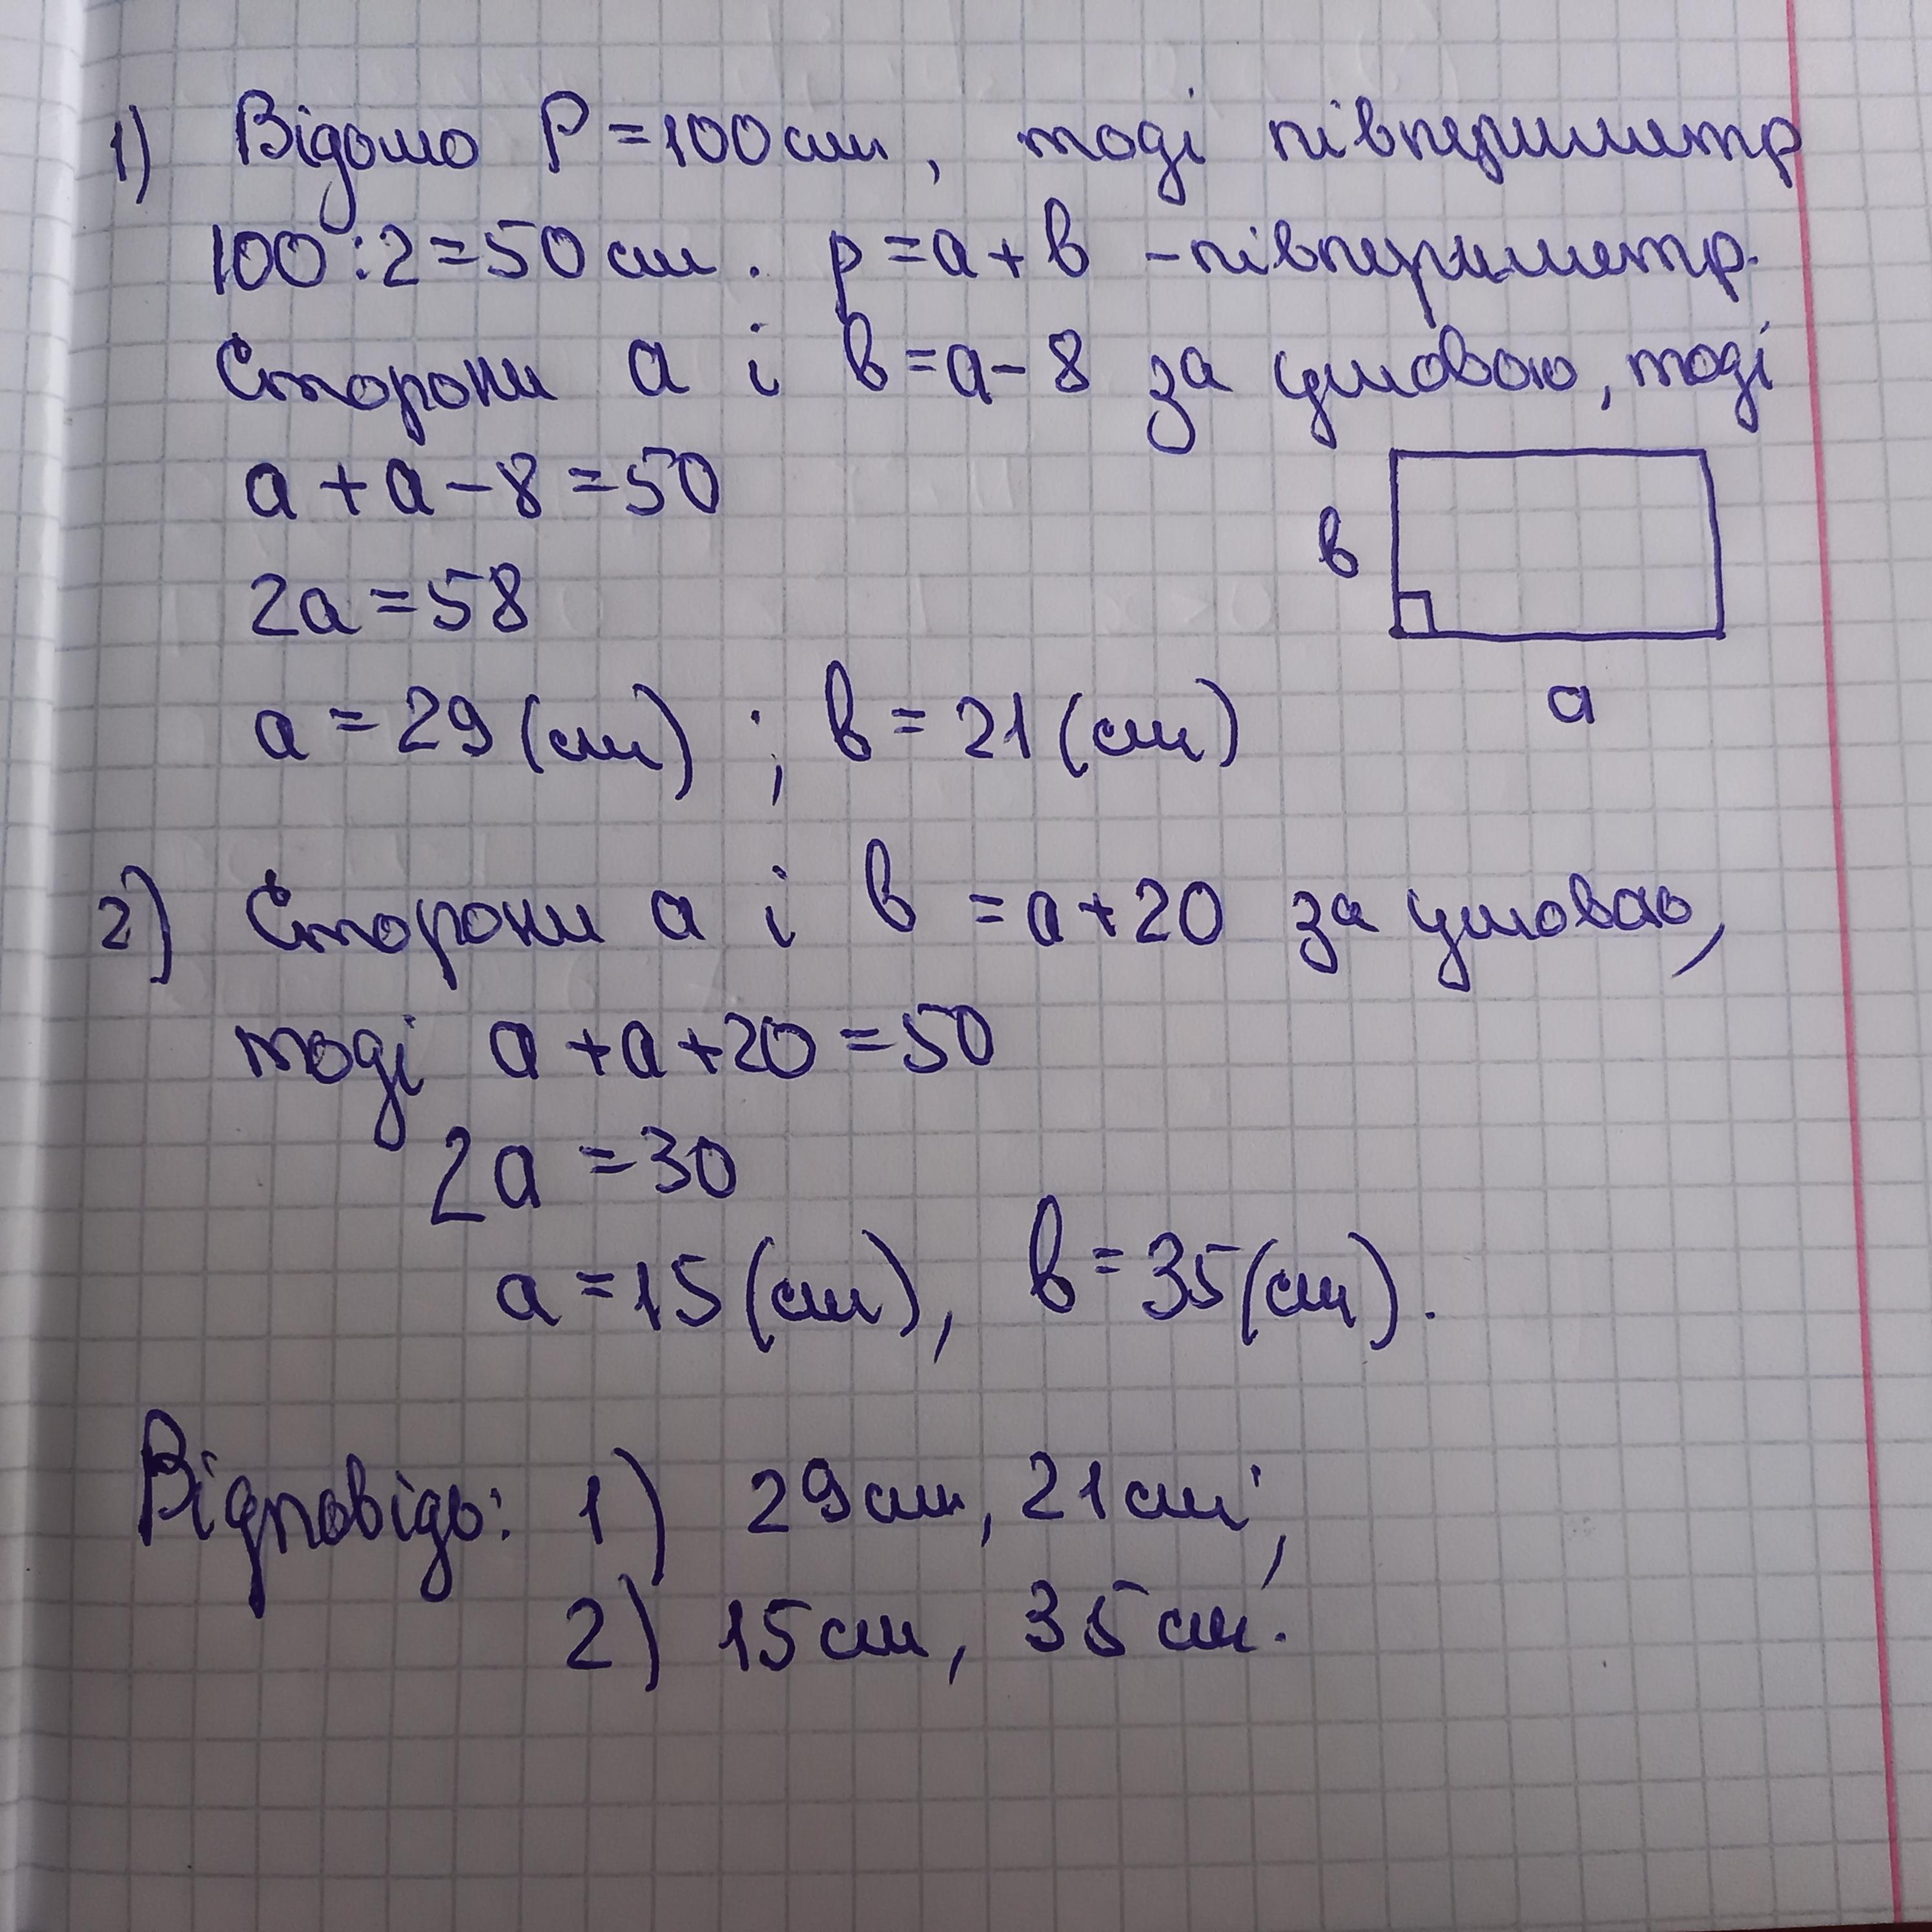 1) Відомо P = 100 см, тоді півпериметр
100 : 2 = 50 см. p = a + в - півпериметр.
Сторони a і в = a - 8 за умовою, тоді
a + a - 8 = 50
2a = 58
в
a = 29 (см) ; в = 21 (см)
a
2) Сторони a і в = a + 20 за умовою,
тоді a + a + 20 = 50
2a = 30
a = 15 (см), в = 35 (см).
Відповідь: 1) 29 см, 21 см;
2) 15 см, 35 см.